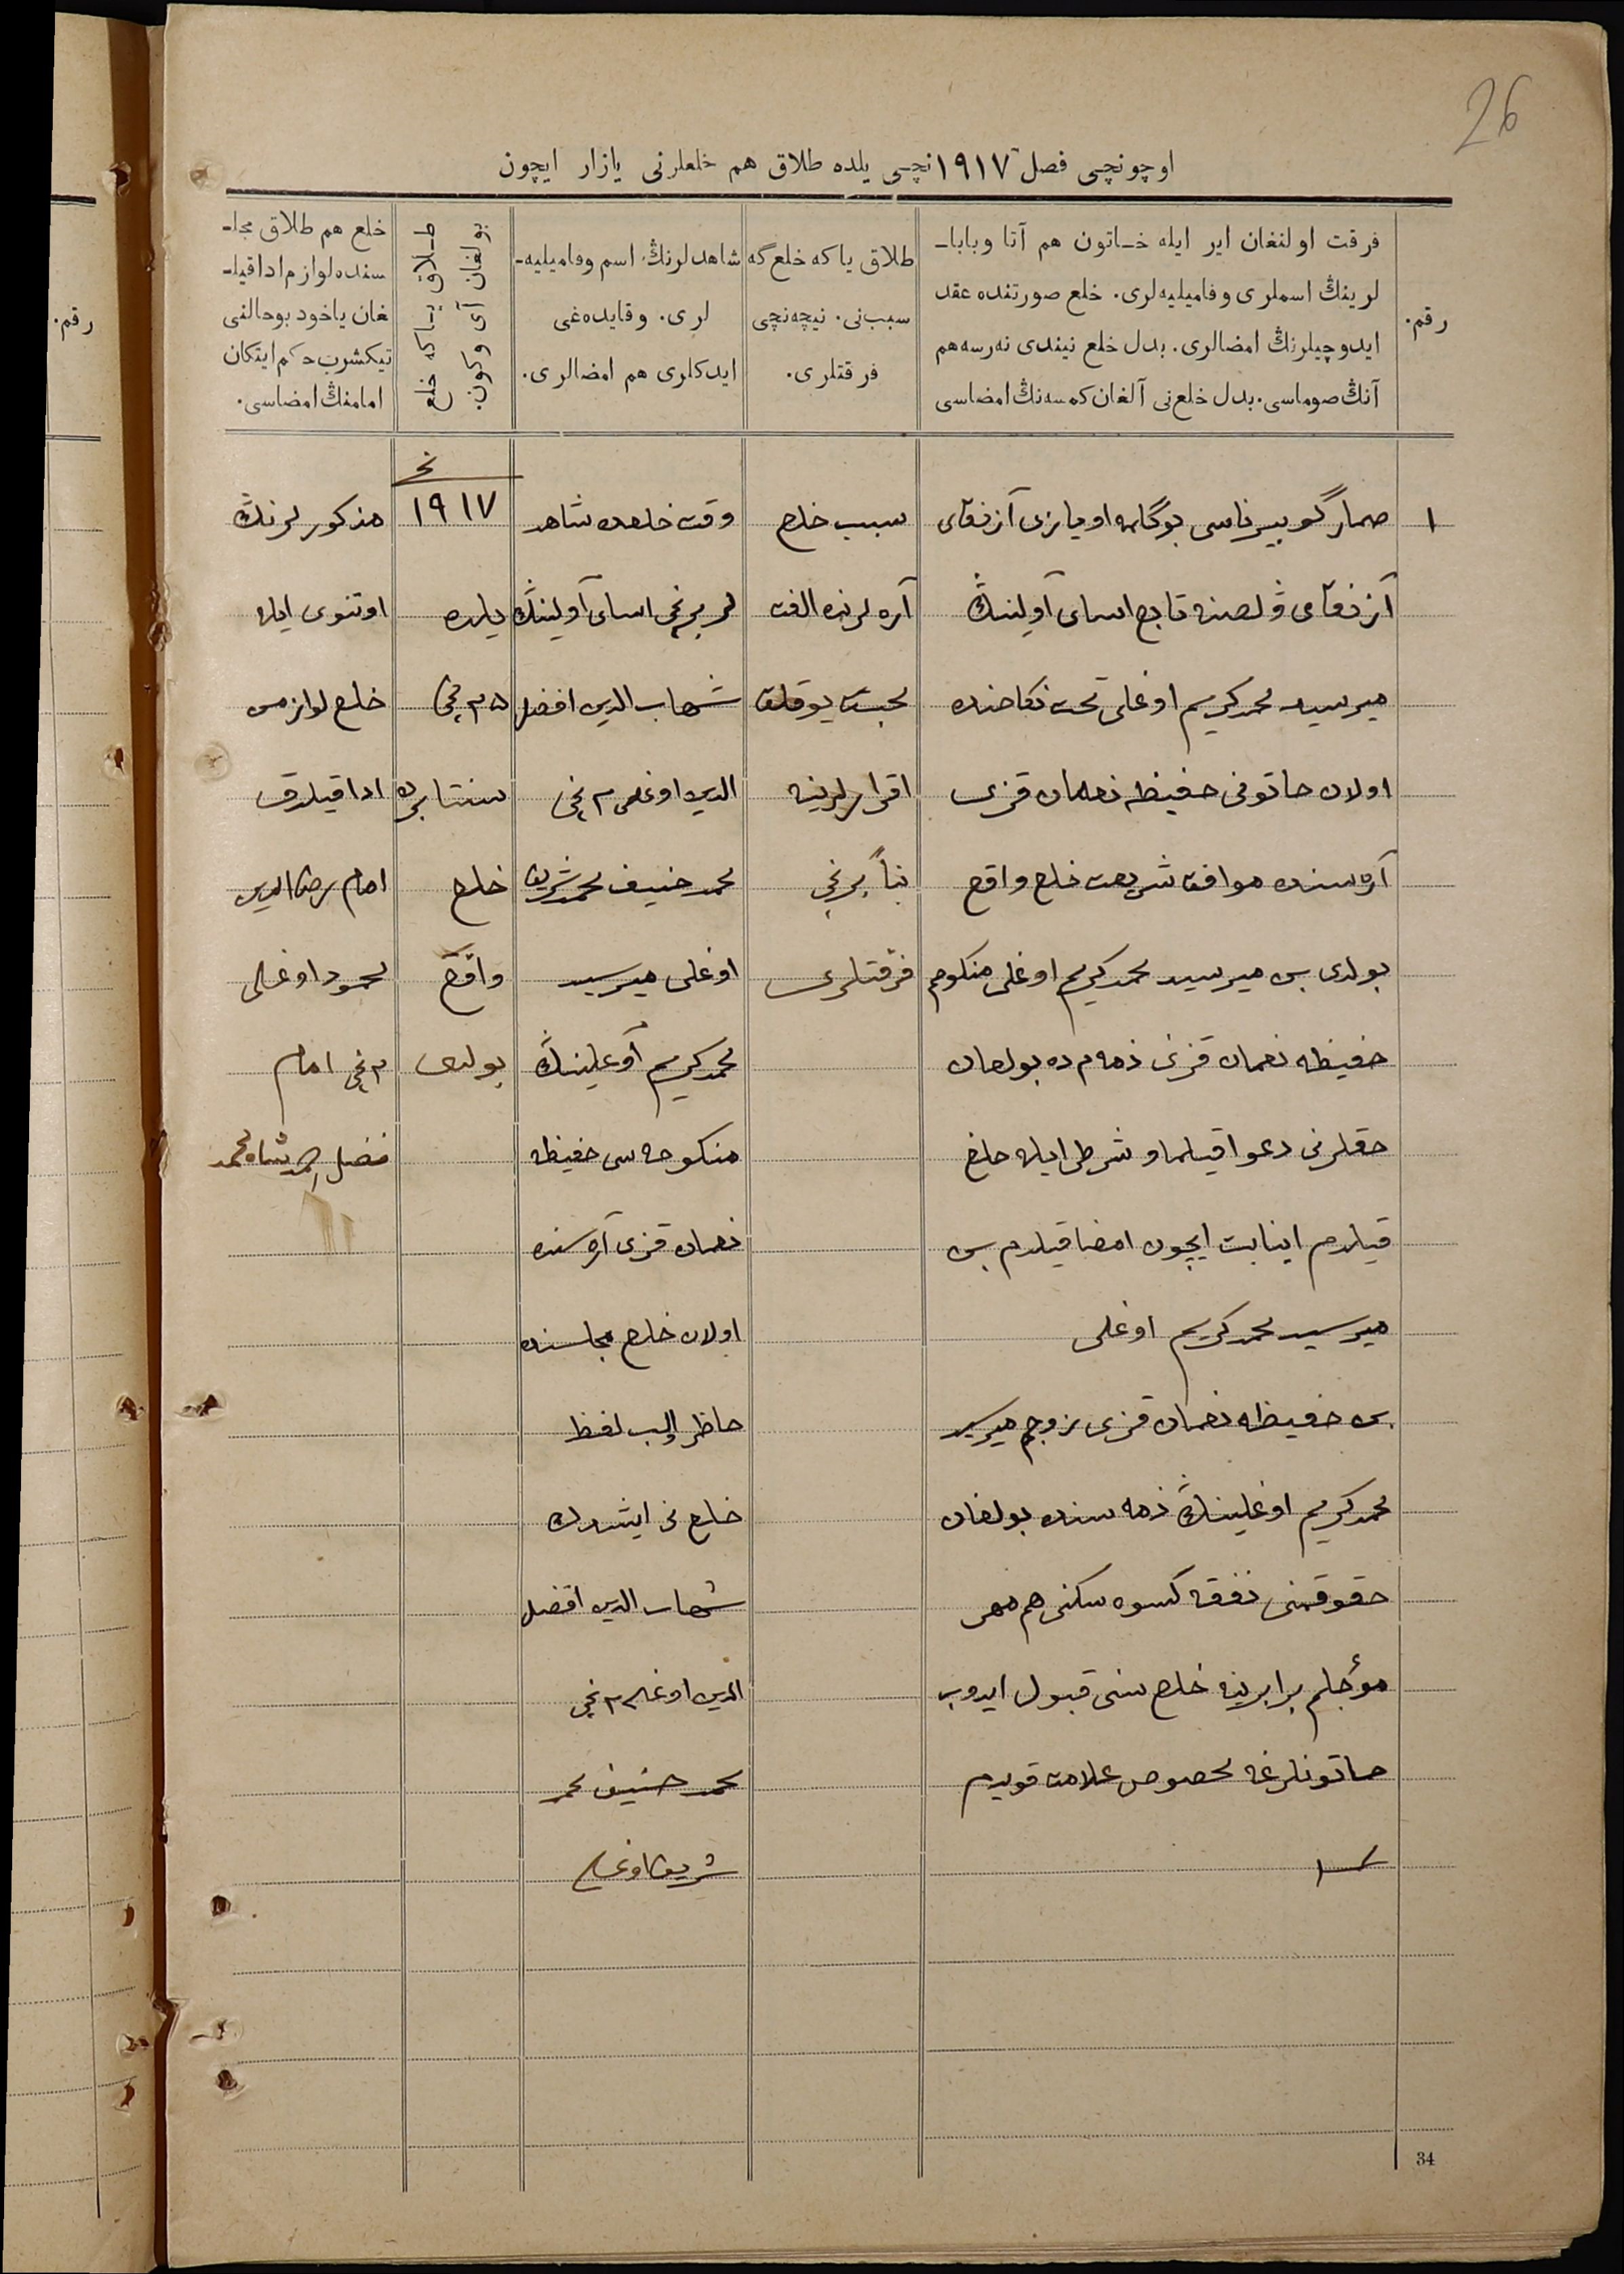 26
اوچونچی فصل ١٩١٧ نچی یلده طلاق هم خلعلرنی یازار ایچون
رقم.
فرقت اولنغان ایر ایله خاتون هم آتا و بابا-
لرینڭ اسملری و فامیلیه‌لری. خلع صورتنده عقد
ایدوچیلرنڭ امضالری. بدل خلع نیندی نه‌رسه هم
آنڭ صوماسی. بدل خلع‌نی آلغان کمسه‌نڭ امضاسی
طلاق یا که خلع گه
سبب‌نی. نیچه‌نچی
فرقتلری.
شاهدلرنڭ اسم وفامیلیه-
لری. وقایده‌غی
ایدکلری هم امضالری.
طلاق یا که خلع
بولغان آی و کون.
خلع هم طلاق مجلـ
سنده لوازم ادا قیلـ
غان یاخود بو حالنی
تیکشرب حکم ایتکان
امامنڭ امضاسی.
رقم.
١
صمار گوبیرناسی بوگلمه اویازی آزنقای
آزنقای ولصنه تابع اسای آولینڭ
میرسید محمدکریم اوغلی تحت نکاحنده
اولان خاتونی حفیظه نعمان قزی
آره‌سنده موافق شریعت خلع واقع
بولدی بن میرسید محمدکریم اوغلی منکوحم
حفیظه نعمان قزی ذمه‌م ده بولغان
حقلرنی دعوا قیلماو شرطی ایله خلع
قیلدم اینابت ایچون امضا قیلدم بن
میرسید محمدکریم اوغلی
بن حفیظه نعمان قزی زوجم میرسید
محمدکریم اوغلینڭ ذمه‌سنده بولغان
حقوقمنی نفقه کسوه سکنی هم مهر
مؤجلم برابرینه خلع‌نی قبول ایدوب
خاتونلرغه مخصوص علامت قویدم
سبب خلع
آره‌لرنده الفت
محبت یوقلق
اقرارلرینه
بناً برنچی
فرقتلری
وقت خلعده شاهد
لر برنچی اسای آولینڭ
شهاب الدین افضل
الدین اوغلی ٢ نچی
محمد حنیف محمدشریف
اوغلی میرسید
محمدکریم اوغلینڭ
منکوحه‌سی حفیظه
نعمان قزی آره‌سنده
اولان خلع مجلسنده
حاظر اولب لفظ
خلع‌نی ایشتدک
شهاب الدین افضل
الدین اوغلی ٢ نچی
محمد حنیف محمد
شریف اوغلی
١٩١٧ نچی
یلده
٢٥ نچی
سنتابرده
خلع
واقع
بولدی
مذکورلرنڭ
اوتنوی ایله
خلع لوازمن
ادا قیلدق
امام رضاالدین
محمود اوغلی
٢ نچی امام
34